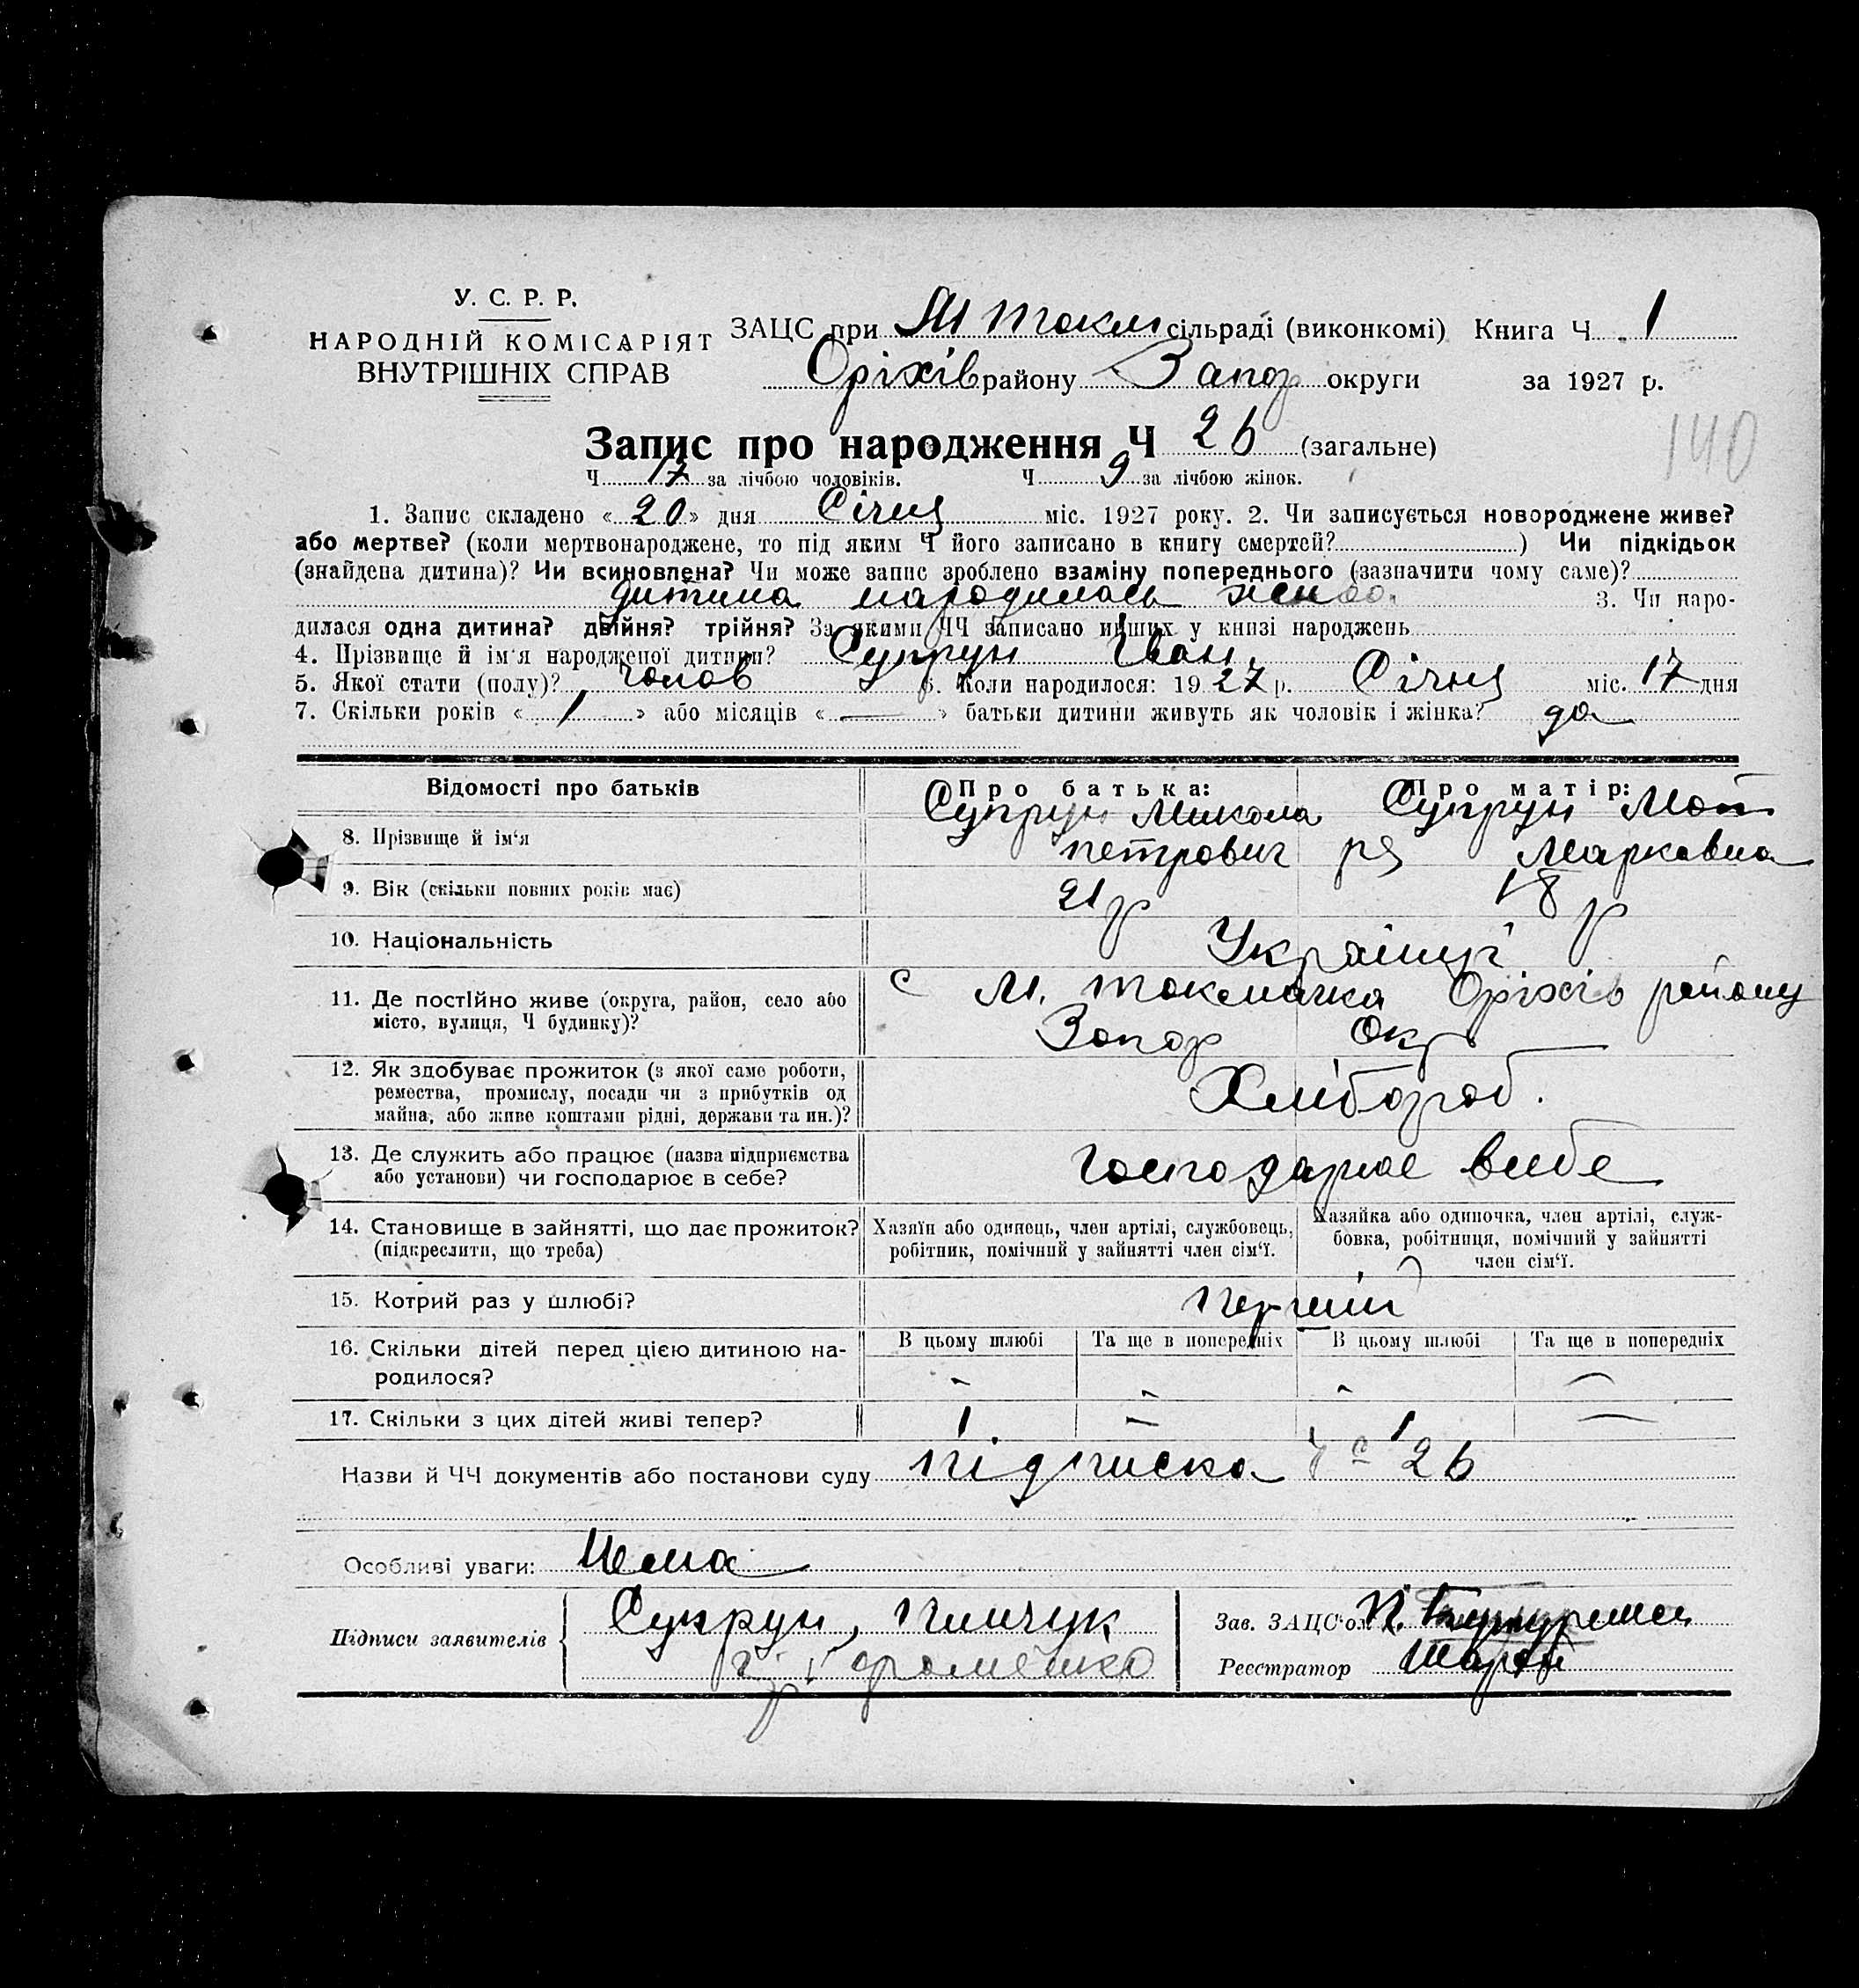 У. С. Р. Р.
НАРОДНІЙ КОМІСАРІЯТ
ВНУТРІШНІХ СПРАВ
ЗАЦС при М Токм сільраді (виконкомі) Книга Ч 1
Оріхів району Запор округи за 1927 р.
140
Запис про народження Ч 26 (загальне)
Ч 17 за лічбою чоловіків. Ч 9 за лічбою жінок.
1. Запис складено «20» дня Січня міс. 1927 року. 2. Чи записується новороджене живе?
або мертве? (коли мертвонароджене, то під яким Ч його записано в книгу смертей?) Чи підкідьок
(знайдена дитина)? Чи всиновлена? Чи може запис зроблено взаміну попереднього (зазначити чому саме)?
дитина народилась жива. 3. Чи наро-
дилася одна дитина? двійня? трійня? За якими ЧЧ записано инших у книзі народжень
4. Прізвище й ім'я народженої дитини? Супрун Іван.
5. Якої стати (полу)? голов 6. Коли народилося: 1927 р. Січня міс. 17 дня
7. Скільки років «1» або місяців «—» батьки дитини живуть як чоловік і жінка? да
Відомості про батьків Про батька: Про матір:
8. Прізвище й ім'я Супрун Микола Петрович Супрун Мотря Марковна
9. Вік (скільки повних років має) 21 р 18 р
10. Національність Україн
11. Де постійно живе (округа, район, село або
місто, вулиця, Ч будинку)? с М. Токмачка Оріхів району
Запор Окр
12. Як здобуває прожиток (з якої саме роботи,
ремества, промислу, посади чи з прибутків од
майна, або живе коштами рідні, держави та ин.)? Хлібороб.
13. Де служить або працює (назва підприємства
або установи) чи господарює в себе? господарює всебе
14. Становище в зайнятті, що дає прожиток?
(підкреслити, що треба)
Хазяїн або одинець, член артілі, службовець,
робітник, помічний у зайнятті член сім'ї.
Хазяйка або одиночка, член артілі, служ-
бовка, робітниця, помічний у зайнятті
член сім'ї.
15. Котрий раз у шлюбі? перший
16. Скільки дітей перед цією дитиною на-
родилося?
В цьому шлюбі Та ще в попередніх В цьому шлюбі Та ще в попередніх
- - - -
17. Скільки з цих дітей живі тепер? 1 — 1 —
Назви й ЧЧ документів або постанови суду підписка 26
Особливі уваги: Нема
Підписи заявителів Супрун,
Зав. ЗАЦС'ом
Реєстратор